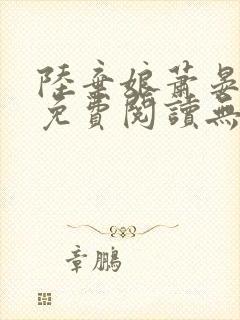 陸棄娘蕭晏
免費閱讀無
章鵬